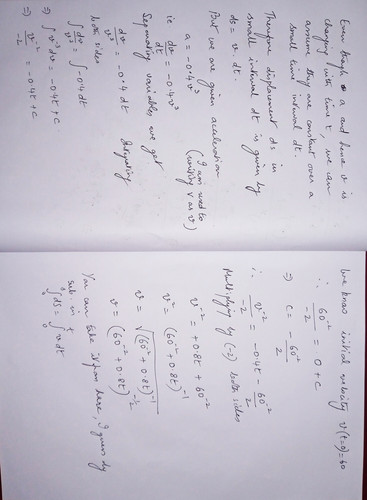 Even though a and hence v is
changing with time t, we can
assume they are constant over a
small time interval dt.
Therefore displacement ds in
small interval dt is given by
ds = v dt.
But we are given acceleration
a = -0.4v³ (I am used to writing v as v)
ie dv/dt = -0.4v³
Separating variables we get
dv/v³ = -0.4 dt Integrating
both sides
∫ dv/v³ = ∫ -0.4 dt
⇒ ∫ v⁻³ dv = -0.4t + C
⇒ v⁻²/-2 = -0.4t + C
We know initial velocity v(t=0) = 60
∴ 60⁻²/-2 = 0 + C
⇒ C = - 60⁻²/2
∴ v⁻²/-2 = -0.4t - 60⁻²/2
Multiplying by (-2) both sides
v⁻² = +0.8t + 60⁻²
v² = (60⁻² + 0.8t)⁻¹
v = √(60⁻² + 0.8t)⁻¹
v = (60⁻² + 0.8t)^-1/2
You can take it from here, I guess by
sub. in
∫₀ˢ ds = ∫₀ᵗ v dt